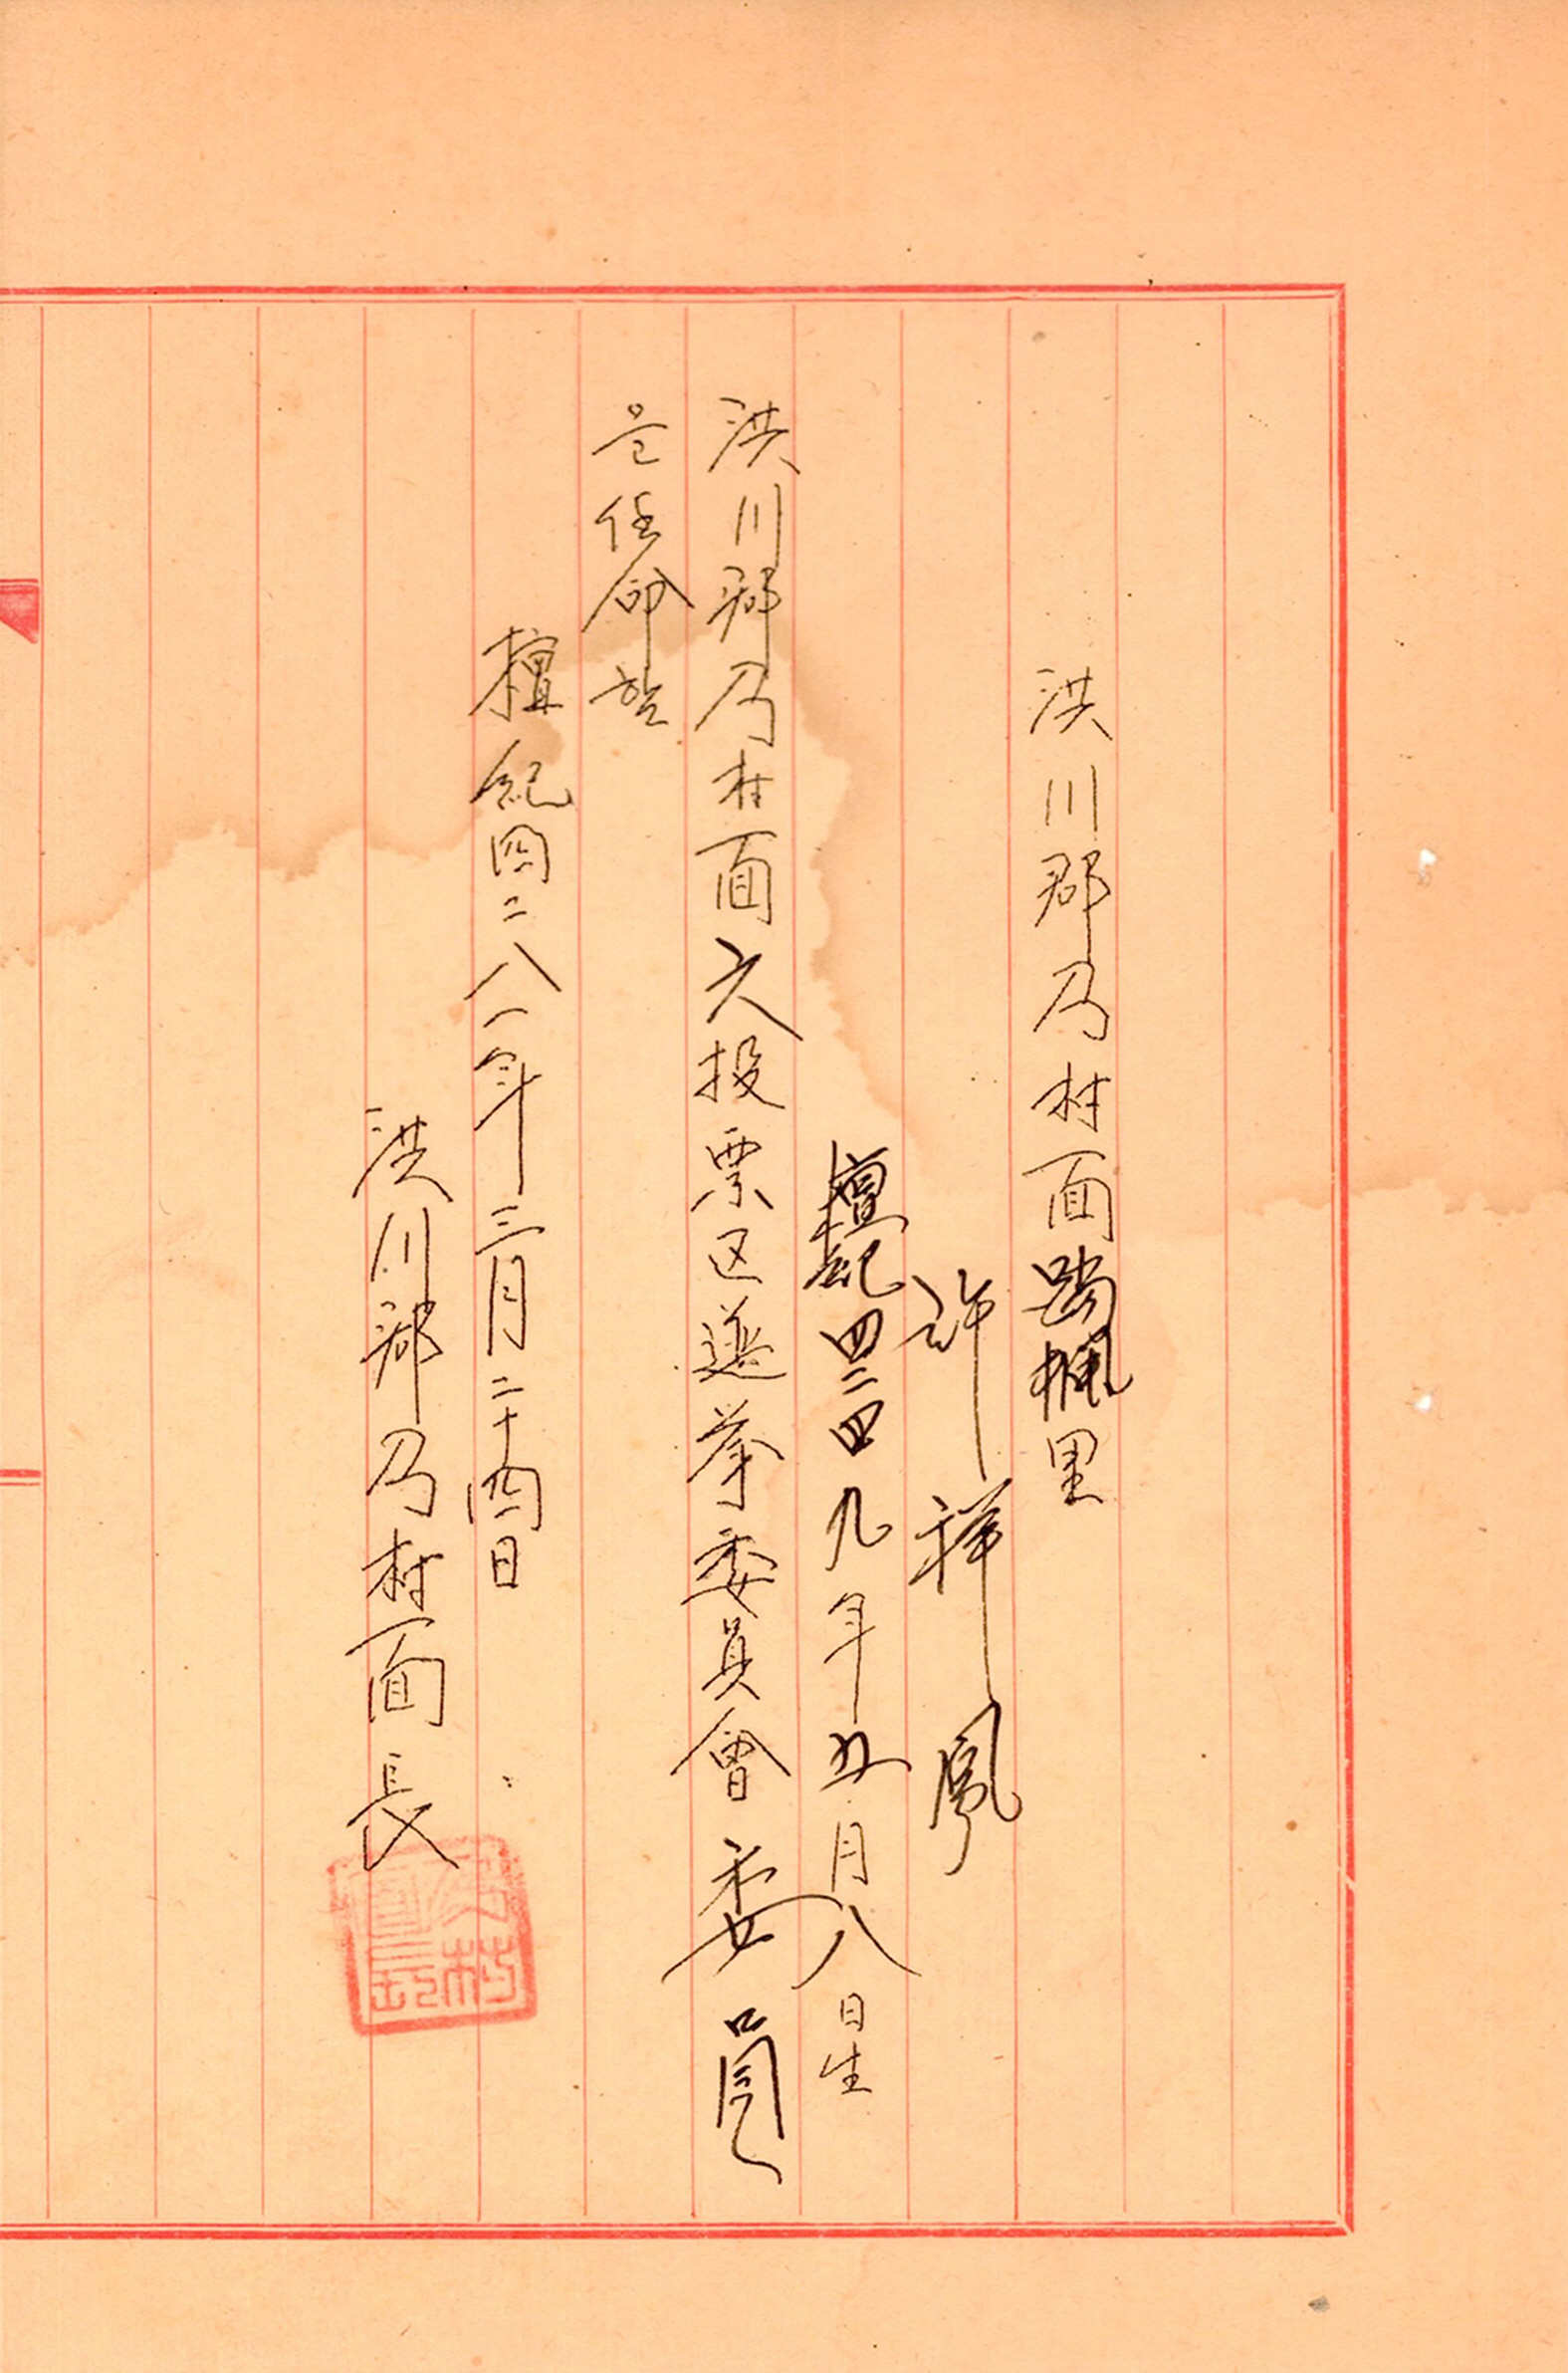 洪川郡乃村面踏楓里
許祥鳳
檀紀四二四九年五月八日生
洪川郡乃村面六投票区選挙委員會委員
을任命함
檀紀四二八一年三月二十四日
洪川郡乃村面長